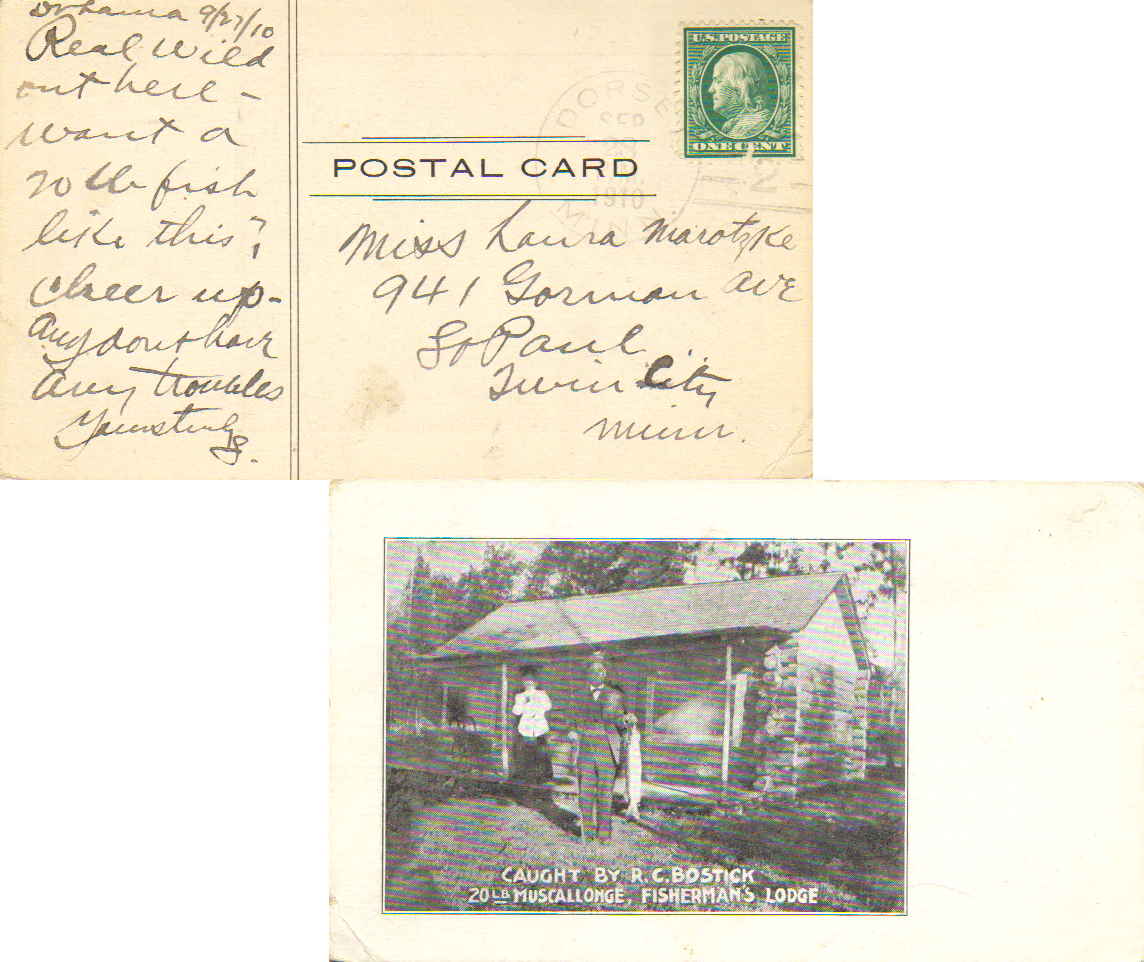 9/27/10
Real Wild
out here –
want a
20 lb fish
like this",
cheer up –
Any don't have
any troubles
Yours truly
POSTAL CARD
U.S. POSTAGE
ONE CENT
DORSE
SEP
1910
MINN
2
Miss Laura Marotzke
941 Gorman Ave
So Paul
Twin City
Minn.
CAUGHT BY R.C. BOSTICK
20 LB MUSCALLONGE, FISHERMAN'S LODGE